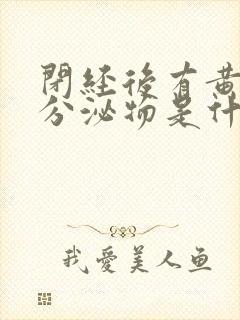 閉經後有黃
分泌物是什
我愛美人鱼